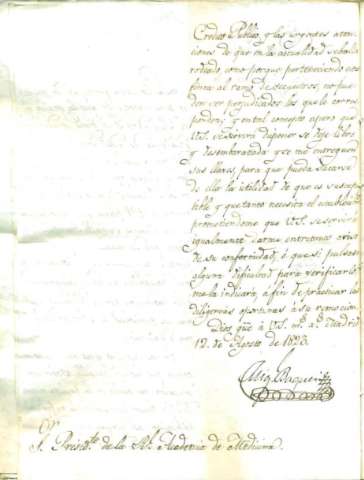 Credito Publico, y las urgentes aten-
ciones de que en la actualidad se halla
rodeado como porque perteneciendo
al ramo de Secuestros, no pue-
den ser perjudicados los que le corres-
ponden; y en tal concepto espero que
V.S. se servirá disponer se deje libre
y desembarazada y se me entreguen
sus llaves, para que pueda sacarse
de ella la utilidad de que es suscep-
tible y que tanto necesita el
prometiendome que V.S. se servirá
igualmente darme entretanto aviso
de su conformidad, ó que si pulsase
alguna dificultad para verificarlo
me la indicará, á fin de practicar las
diligencias oportunas á su remocion.
Dios gue. á V.S. ms. as. Madrid
12. de Agosto de 1823.
Sr. Presidte. de la Rl. Academia de Medicina.